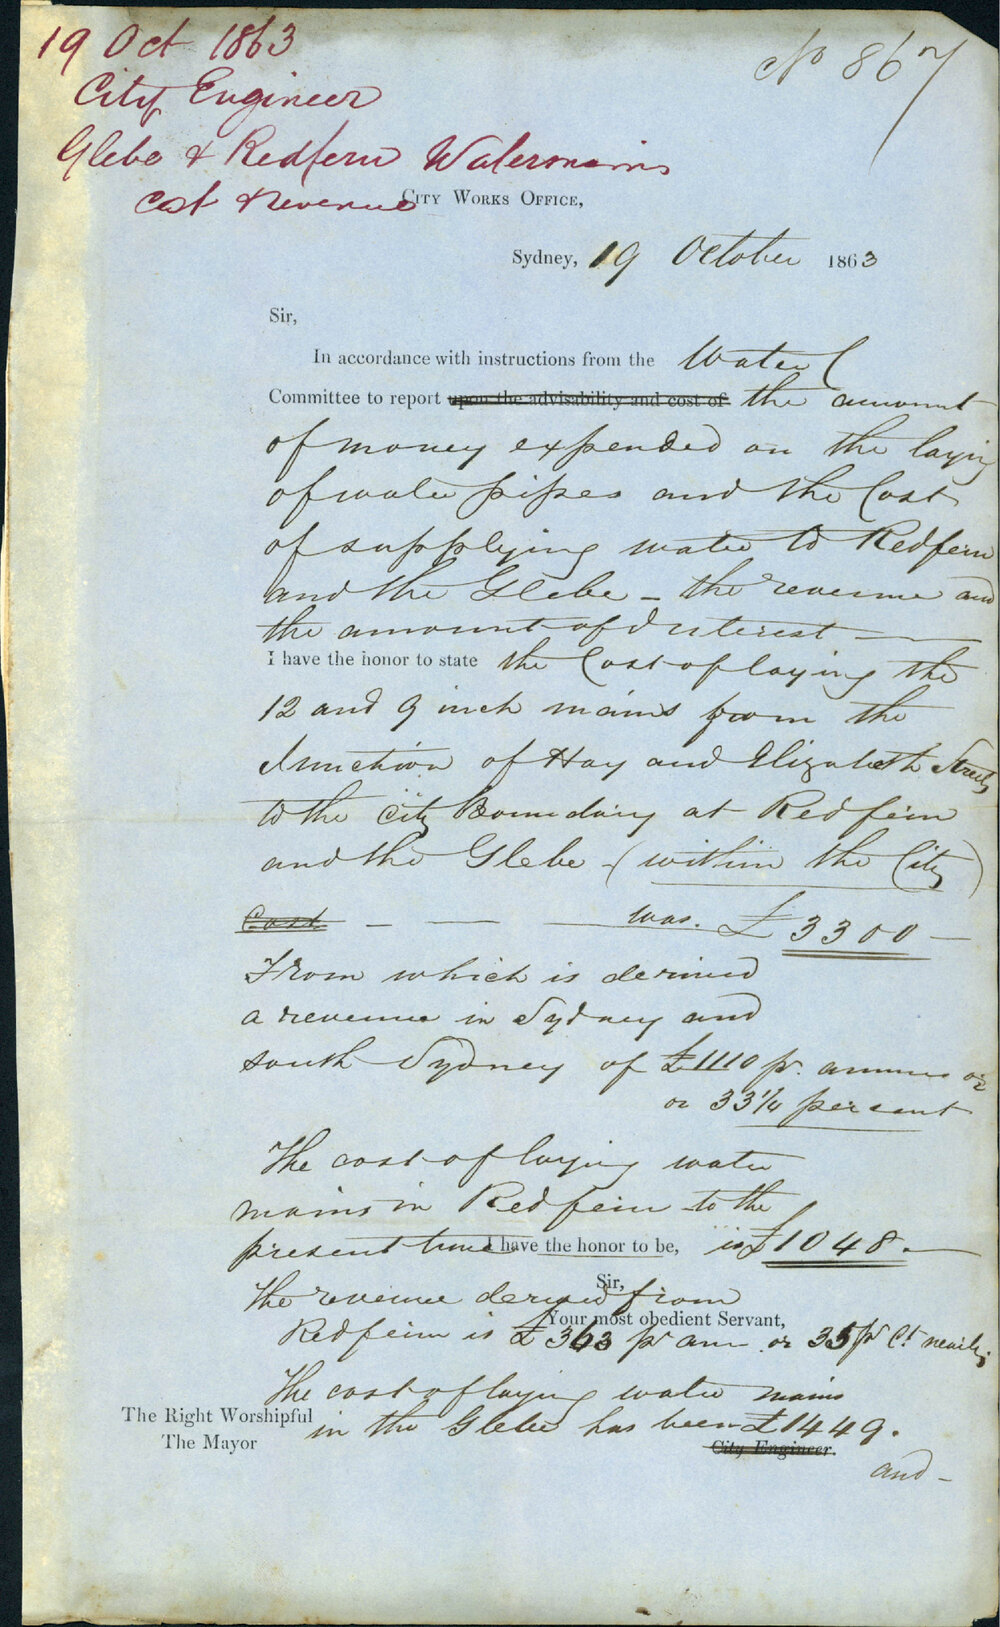 19 Oct 1863
No 867
City Engineer
Glebe & Redfern Watermains
Cost & Revenue
CITY WORKS OFFICE,
Sydney, 19 October 1863
Sir,
In accordance with instructions from the Water
Committee to report upon the advisability and cost of the amount
of money expended on the laying
of water pipes and the Cost
of supplying water to Redfern
and the Glebe - the revenue and
the amount of Interest
I have the honor to state the Cost of laying the
12 and 9 inch mains from the
Junction of Hay and Elizabeth Streets
to the city Boundary at Redfern
and the Glebe - (within the City)
Cost - - was. £3300 -
From which is derived
a revenue in Sydney and
South Sydney of £1110 pr. annum or
or 33 1/4 per cent
The cost of laying water
mains in Redfern to the
present time I have the honor to be, is £1048. -
Sir,
The revenue derived from
Your most obedient Servant,
Redfern is £363 pr ann or 35 pr Ct nearly.
The cost of laying water mains
The Right Worshipful
in the Glebe has been £1449.
The Mayor
City Engineer.
and -